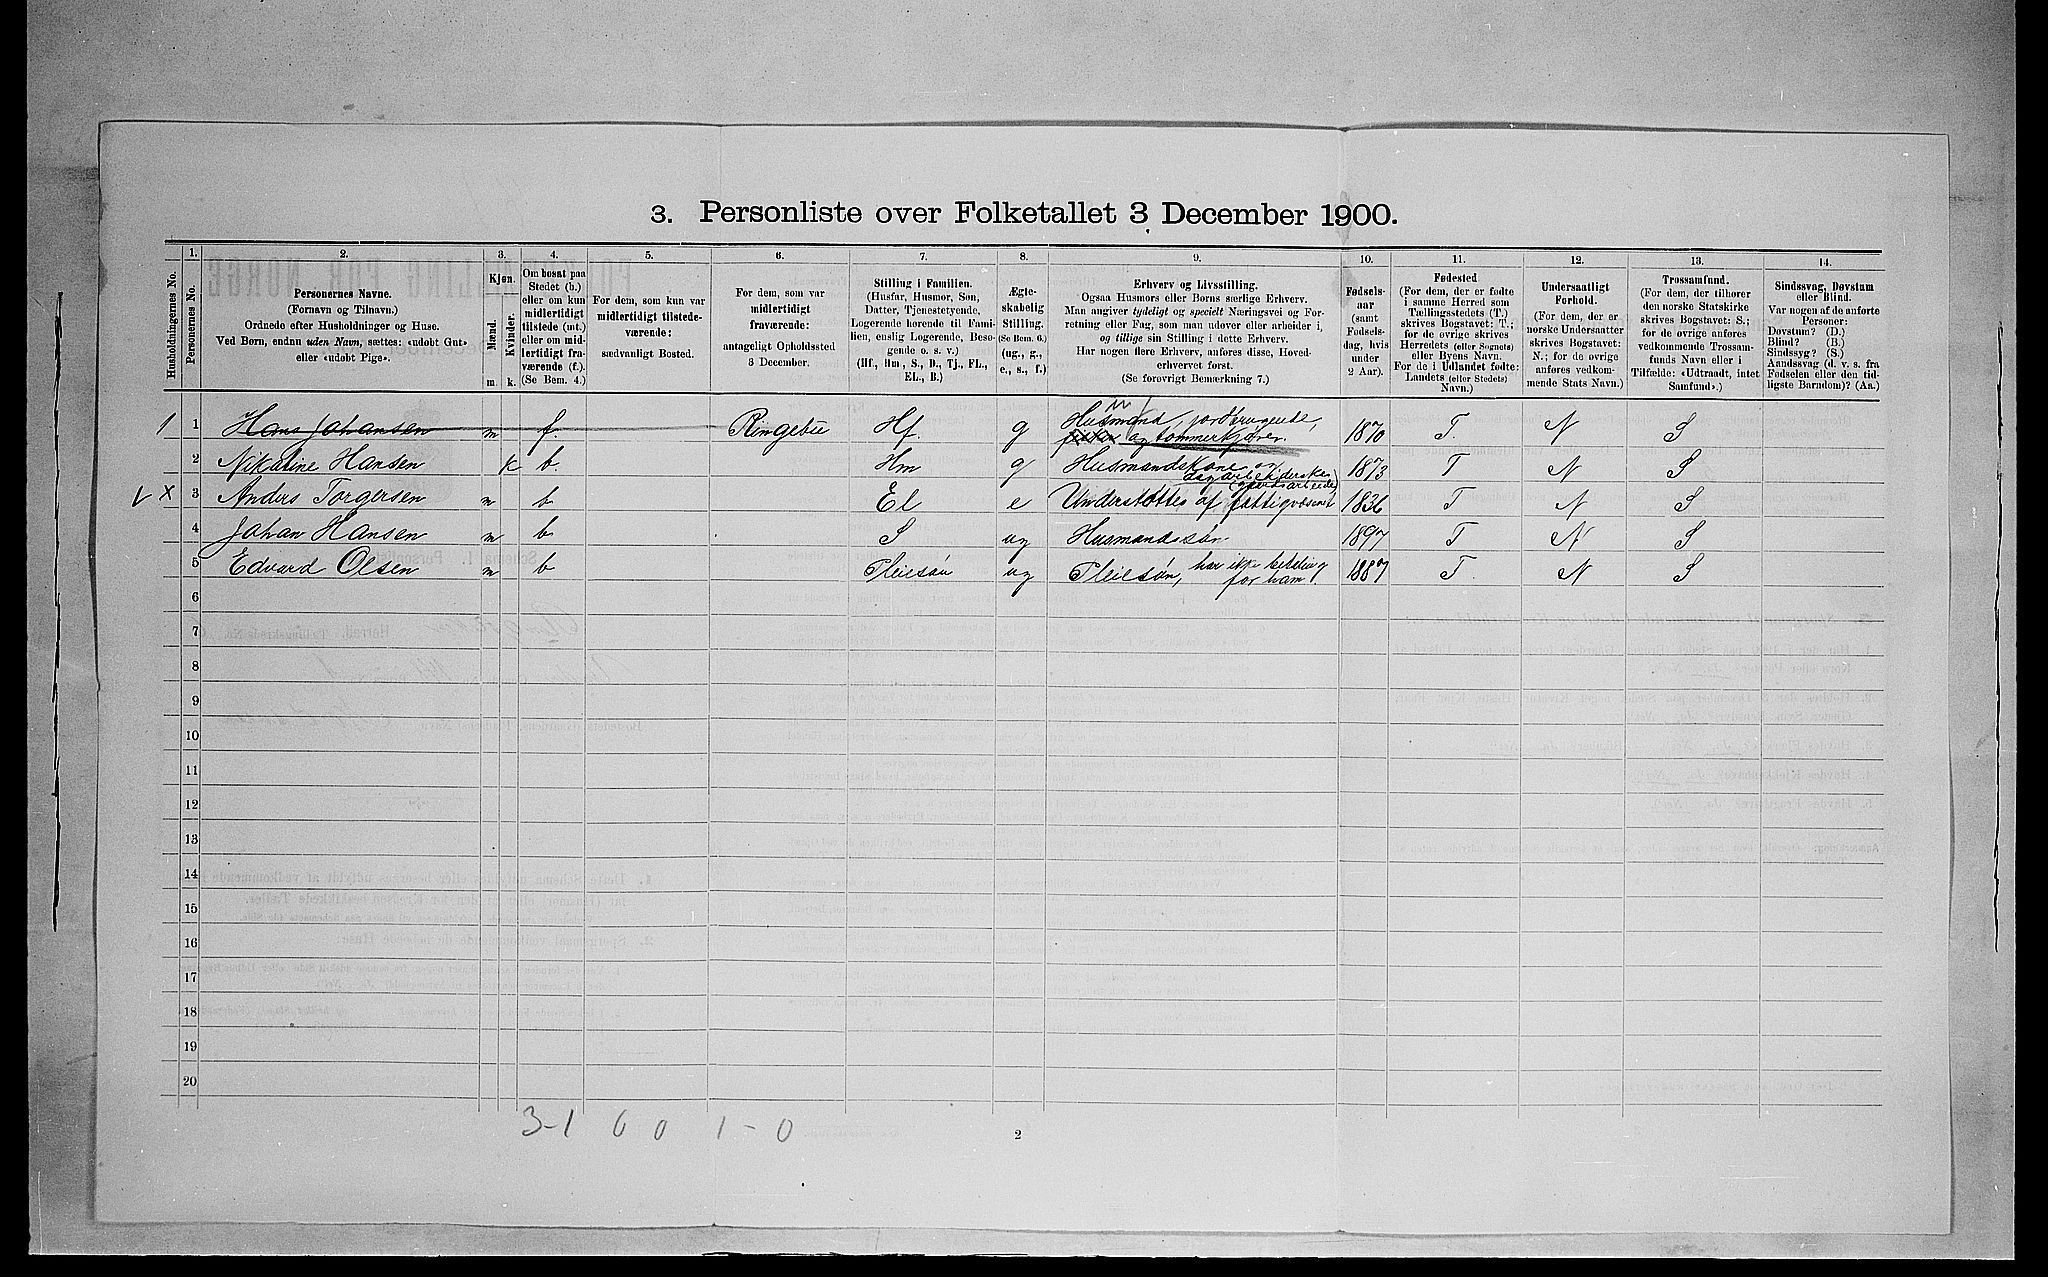 3. Personliste over Folketallet 3 December 1900.
1. 2. 3. 4. 5. 6. 7. 8. 9. 10. 11. 12. 13. 14.
Husholdningernes No.
Personernes No.
Personernes Navne.
(Fornavn og Tilnavn.)
Ordnede efter Husholdninger og Huse.
Ved Børn, endnu uden Navn, sættes: «udøbt Gut»
eller «udøbt Pige».
Kjøn.
Mænd.
Kvinder.
m. k.
Om bosat paa
Stedet (b.)
eller om kun
midlertidigt
tilstede (mt.)
eller om mid-
lertidigt fra-
værende (f.)
(Se Bem. 4.)
For dem, som kun var
midlertidigt tilstede-
værende:
sædvanligt Bosted.
For dem, som var
midlertidigt
fraværende:
antageligt Opholdssted
3 December.
Stilling i Familien.
(Husfar, Husmor, Søn,
Datter, Tjenestetyende,
Logerende hørende til Fami-
lien, enslig Logerende, Besø-
gende o. s. v.)
(Hf, Hm, S., D., Tj., FL.,
EL., B.)
Ægte-
skabelig
Stilling.
(Se Bem. 6.)
(ug., g.,
e., s., f.)
Erhverv og Livsstilling.
Ogsaa Husmors eller Børns særlige Erhverv.
Man angiver tydeligt og specielt Næringsvei og For-
retning eller Fag, som man udøver eller arbeider i,
og tillige sin Stilling i dette Erhverv.
Har nogen flere Erhverv, anføres disse, Hoved-
erhvervet først.
(Se forøvrigt Bemærkning 7.)
Fødsels-
aar
(samt
Fødsels-
dag, hvis
under
2 Aar).
Fødested
(For dem, der er fødte
i samme Herred som
Tællingsstedets (T.)
skrives Bogstavet: T.;
for de øvrige skrives
Herredets (eller Sognets)
eller Byens Navn.
For de i Udlandet fødte:
Landets (eller Stedets)
Navn.)
Undersaatligt
Forhold.
(For dem, der er
norske Undersaatter
skrives Bogstavet:
N.; for de øvrige
anføres vedkom-
mende Stats Navn.)
Trossamfund.
(For dem, der tilhører
den norske Statskirke
skrives Bogstavet: S.;
for de øvrige anføres
vedkommende Trossam-
funds Navn eller i
Tilfælde: «Udtraadt, intet
Samfund».)
Sindssvag, Døvstum
eller Blind.
Var nogen af de anførte
Personer:
Døvstum? (D.)
Blind? (B.)
Sindssyg? (S.)
Aandssvag (d. v. s. fra
Fødselen eller den tid-
ligste Barndom)? (Aa.)
1 1 Hans Johansen m f. Ringebu Hf. g Husmand, jordbrugende, og tømmerkjører. 1870 T. N S
2 Nikoline Hansen k b. Hm g Husmandskone og dagarbeiderske 1873 T N S
3 Anders Torgersen m b El e Understøttes af fattigvæsenet 1836 T N S
4 Johan Hansen m b S ug Husmandssøn 1897 T N S
5 Edvard Olsen m b Pleiesøn ug Pleiesøn, har ikke betaling for ham 1887 T. N S
6
7
8
9
10
11
12
13
14
15
16
17
18
19
20
3-1 0 0 1-0
2